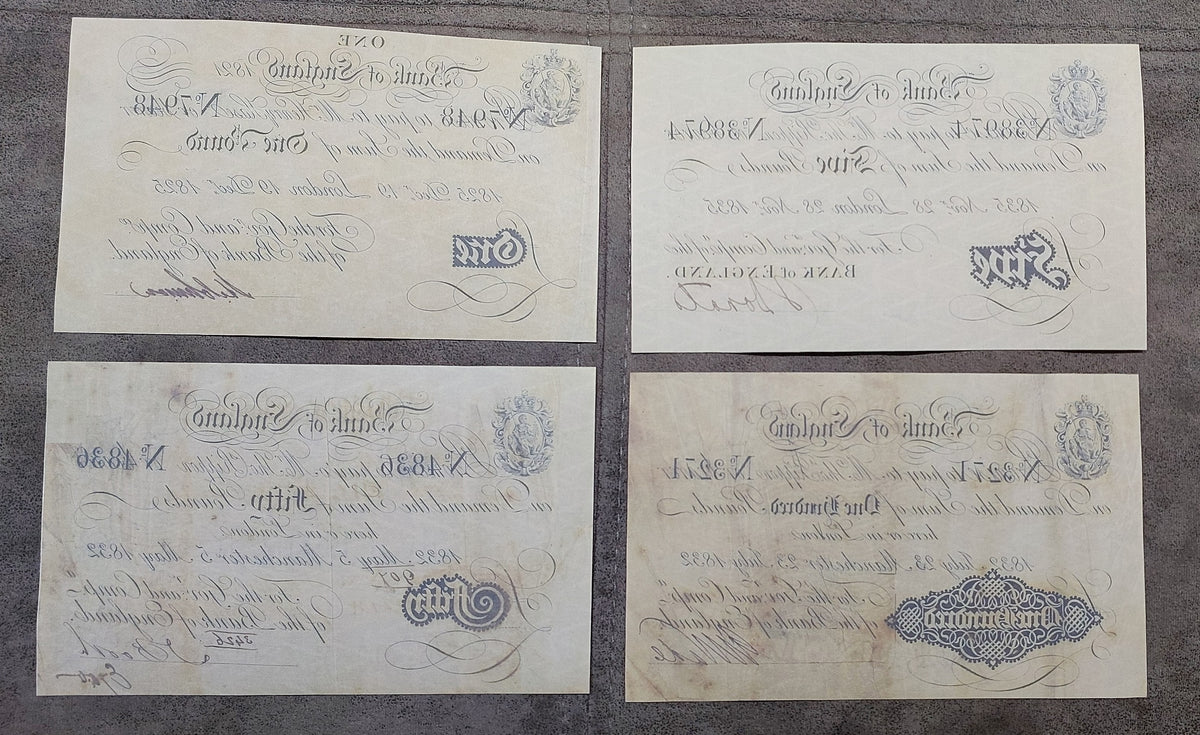 ONE
Bank of England 1821
Nº 7948 to pay to Mr. Henry Hase Nº 7948
on Demand the Sum of One Pound
1825 Decr. 19 London 19 Decr. 1825
For the Govr. and Compa. of the Bank of England.
One
Bank of England
Nº 38974 to pay to Mr. Nº 38974
on Demand the Sum of Five Pounds
1835 Novr. 28 London 28 Novr. 1835
For the Govr. and Compa. of the
BANK of ENGLAND.
Five
Bank of England
Nº 4836 to pay to Mr. Nº 4836
on Demand the Sum of Fifty Pounds
here or in London
1832 May 5 Manchester 5 May 1832
For the Govr. and Compa.
of the Bank of England.
Fifty
3426
Bank of England
Nº 3271 to pay to Mr. Nº 3271
on Demand the Sum of One Hundred Pounds
here or in London
1832 July 23 Manchester 23 July 1832
For the Govr. and Compa.
of the Bank of England
One Hundred